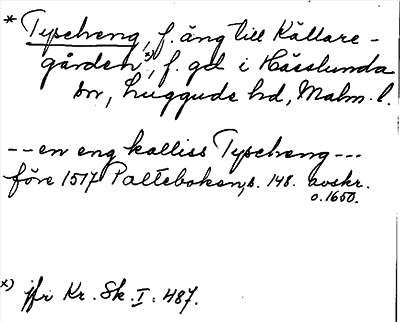 * Typcheng, f. äng till Källare-
gården x), f. gd i Hässlunda
sn, Luggude hd, Malm. l.
-- en eng kalliss Typcheng ---
före 1517 Palteboken, s. 148. avskr.
o. 1650.
x) jfr Kr. Sk. I. 487.